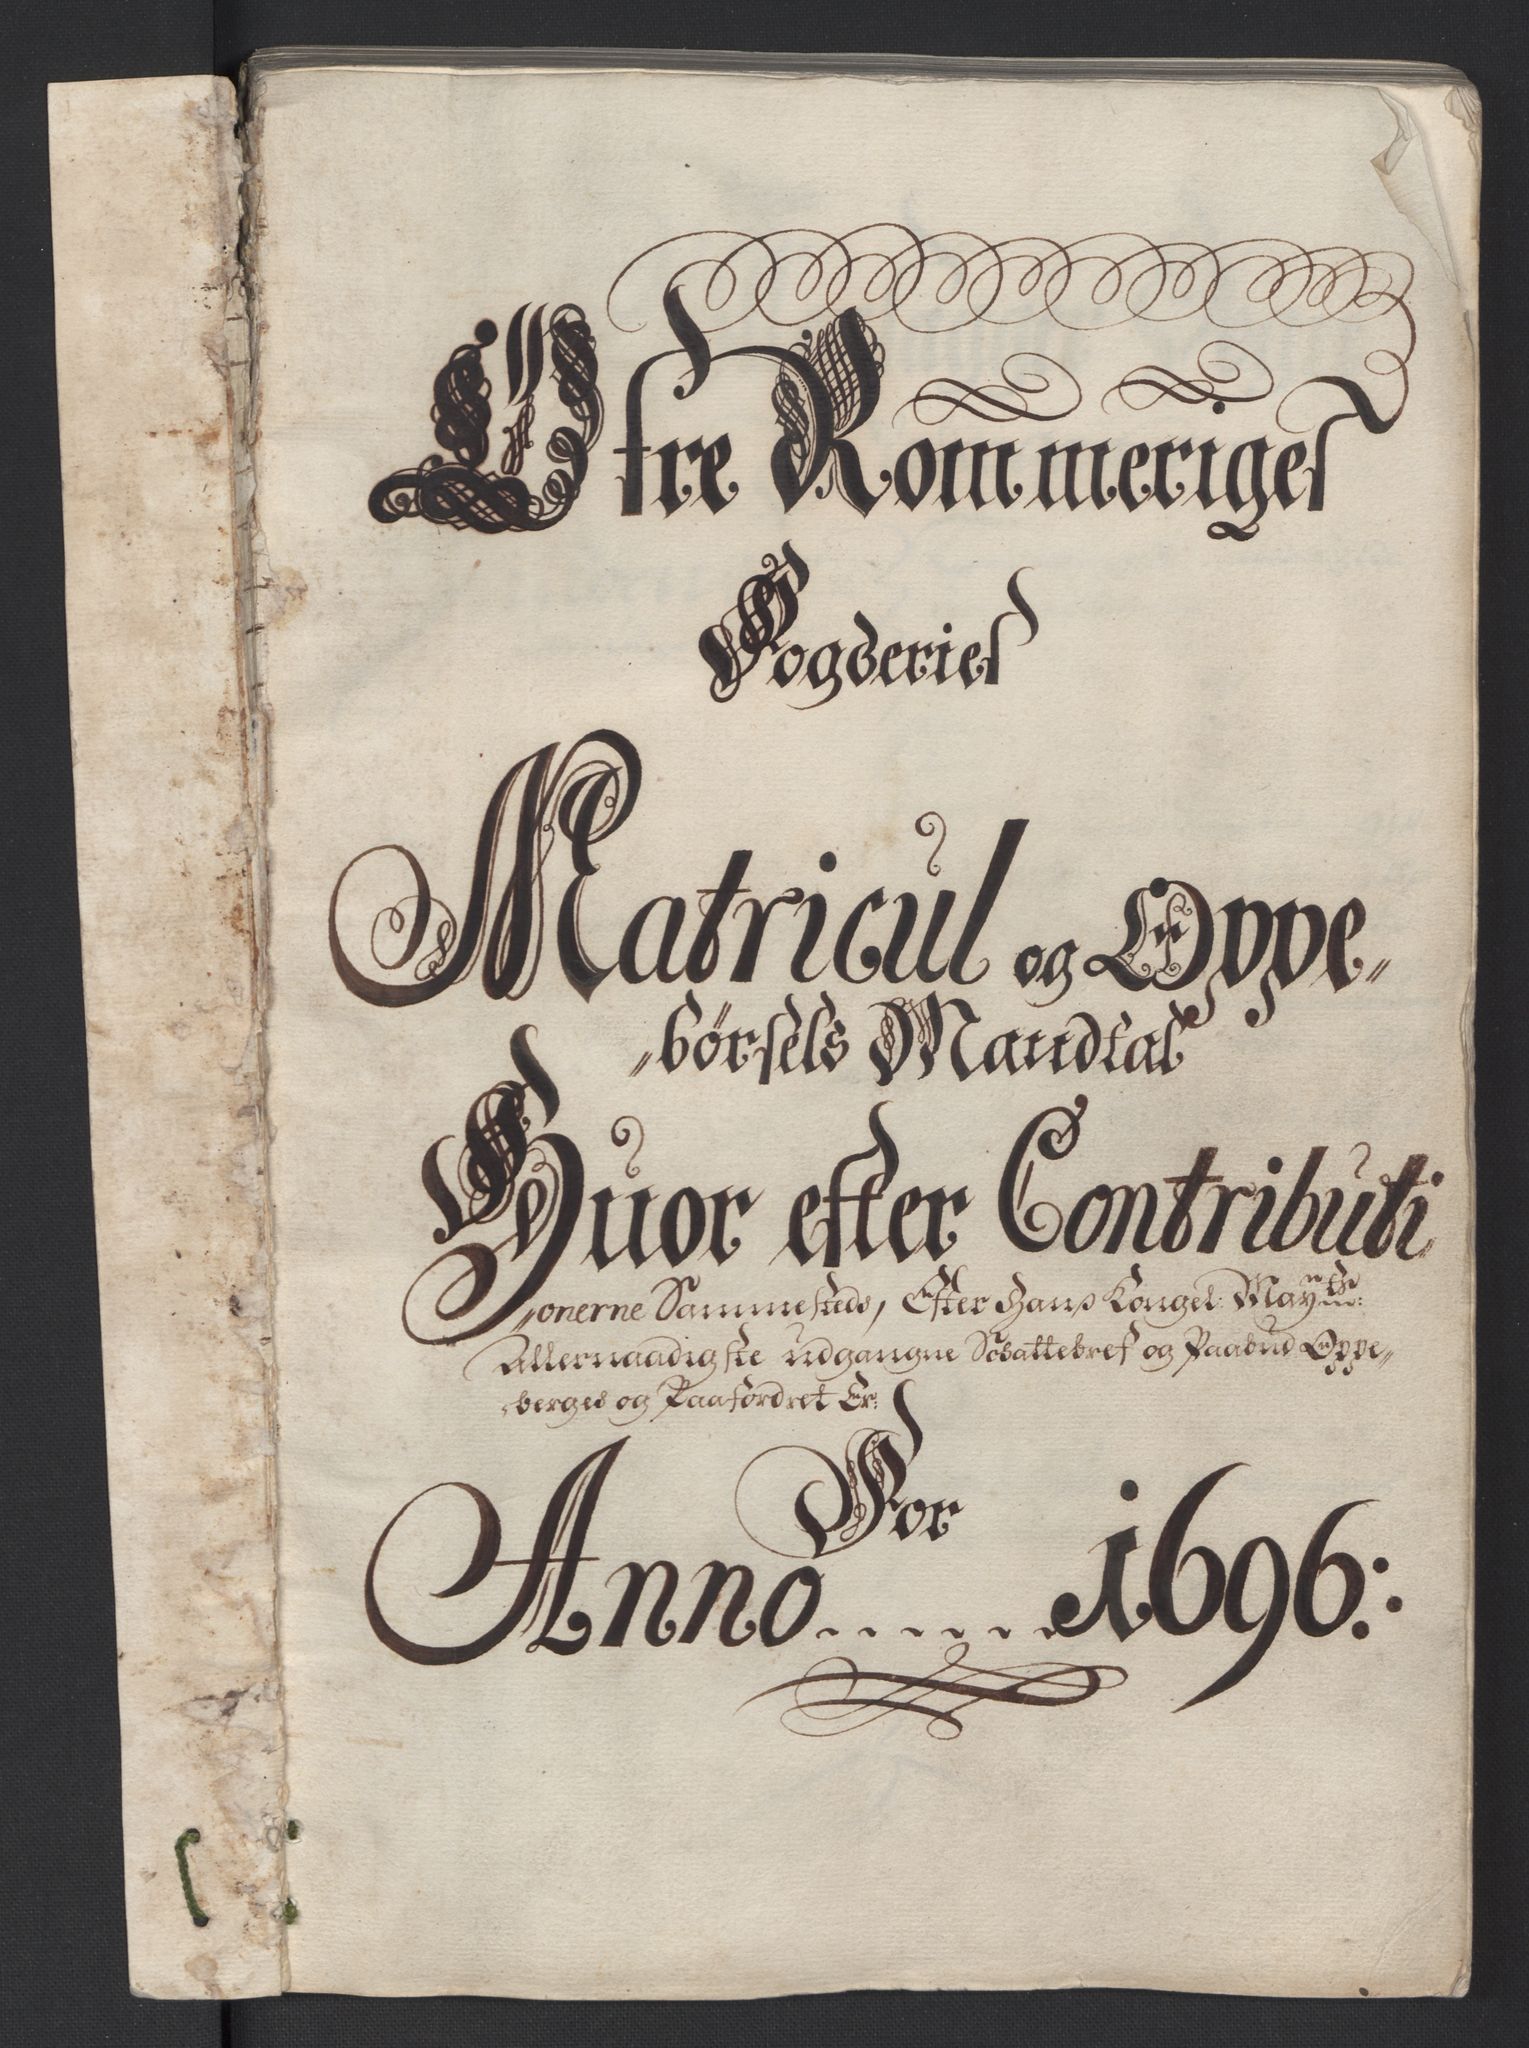 Øfre Rommeriges
Fogderies
Matricul og Oppe„
„børsels Mandtal
Huor efter Contributi„
„onerne Sammesteds, Efter Hans Kongel: Mayts:
Allernaadigste udgangne Schattebref og Paabud Oppe„
„berges og Paafordret Er:
For
Anno......1696: